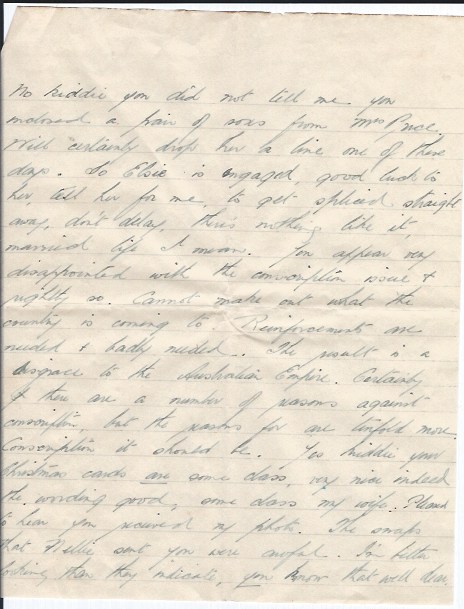 No kiddie you did not tell me you
enclosed a pair of sox from Mrs Price.
Will certainly drop her a line one of these
days. So Elsie is engaged, good luck to
her, tell her for me, to get spliced straight
away, don't delay, there's nothing like it,
married life I mean. You appear very
disappointed with the conscription issue &
rightly so. Cannot make out what the
country is coming to. Reinforcements are
needed & badly needed. The result is a
disgrace to the Australian Empire. Certainly
there are a number of reasons against
conscription, but the reasons for are tenfold more.
Conscription it should be. Yes kiddie your
Christmas cards are some class, very nice indeed
the wording good, some class my wife. Pleased
to hear you received my photo. The snaps
that Nellie sent you were awful. I'm better
looking than they indicate, you know that well dear.